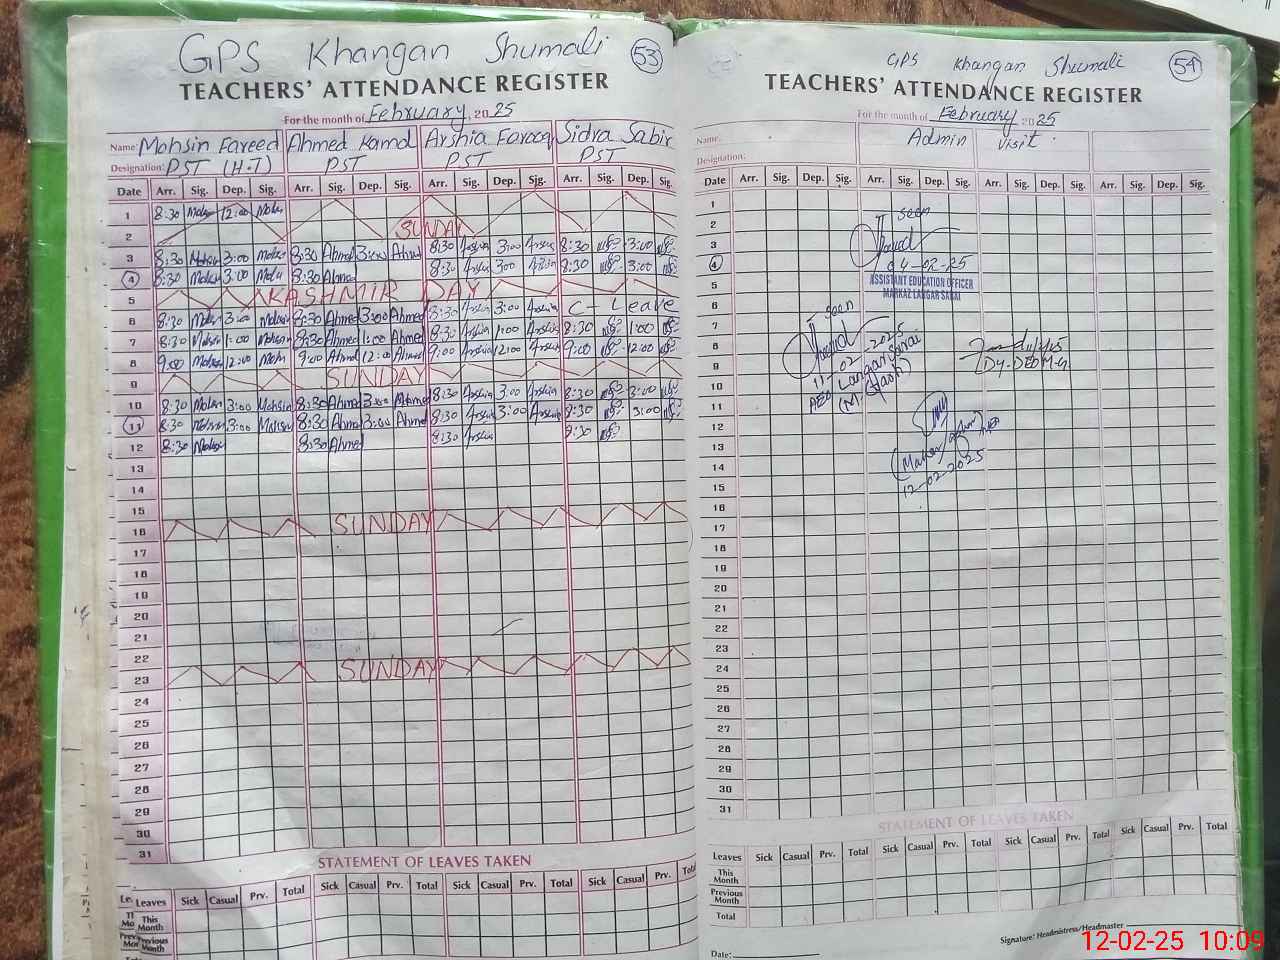 GPS Khangan Shumali 53
TEACHERS' ATTENDANCE REGISTER
For the month of February, 2025
Name: Mohsin Fareed Ahmed Kamal Arshia Farooq Sidra Sabir
Designation: PST (H.T) PST PST PST
Date Arr. Sig. Dep. Sig. Arr. Sig. Dep. Sig. Arr. Sig. Dep. Sig. Arr. Sig. Dep. Sig.
1 8:30 Mohsin 12:00 Mohsin
2 SUNDAY
3 8:30 Mohsin 3:00 Mohsin 8:30 Ahmed 3:00 Ahmed 8:30 Arshia 3:00 Arshia 8:30 3:00
4 8:30 Mohsin 3:00 Mohsin 8:30 Ahmed 8:30 Arshia 3:00 Arshia 8:30 3:00
5 KASHMIR DAY
6 8:30 Mohsin 3:00 Mohsin 8:30 Ahmed 3:00 Ahmed 8:30 Arshia 3:00 Arshia C - Leave
7 8:30 Mohsin 1:00 Mohsin 8:30 Ahmed 1:00 Ahmed 8:30 Arshia 1:00 Arshia 8:30 1:00
8 9:00 Mohsin 12:00 Mohsin 9:00 Ahmed 12:00 Ahmed 9:00 Arshia 12:00 Arshia 9:00 12:00
9 SUNDAY
10 8:30 Mohsin 3:00 Mohsin 8:30 Ahmed 3:00 Ahmed 8:30 Arshia 3:00 Arshia 8:30 3:00
11 8:30 Mohsin 3:00 Mohsin 8:30 Ahmed 3:00 Ahmed 8:30 Arshia 3:00 Arshia 8:30 3:00
12 8:30 Mohsin 8:30 Ahmed 8:30 Arshia 8:30
13
14
15
16 SUNDAY
17
18
19
20
21
22
23 SUNDAY
24
25
26
27
28
29
30
31
STATEMENT OF LEAVES TAKEN
Leaves Sick Casual Prv. Total Sick Casual Prv. Total Sick Casual Prv. Total Sick Casual Prv. Total
This Month
Previous Month
Total
GPS Khangan Shumali 54
TEACHERS' ATTENDANCE REGISTER
For the month of February 2025
Name: Admin Visit
Designation:
Date Arr. Sig. Dep. Sig. Arr. Sig. Dep. Sig. Arr. Sig. Dep. Sig. Arr. Sig. Dep. Sig.
1
2 seen
3
4 04-02-25
5 ASSISTANT EDUCATION OFFICER
MARKAZ LANGAR SARAI
6 seen
7
8 11-02-2025
9 AEO Langar Sarai (Dy-DEO M-G)
10 (M. Gash)
11
12
13
14
15 12-02-2025
16
17
18
19
20
21
22
23
24
25
26
27
28
29
30
31
STATEMENT OF LEAVES TAKEN
Leaves Sick Casual Prv. Total Sick Casual Prv. Total Sick Casual Prv. Total Sick Casual Prv. Total
This Month
Previous Month
Total
Signature: Headmistress/Headmaster
Date:
12-02-25 10:09